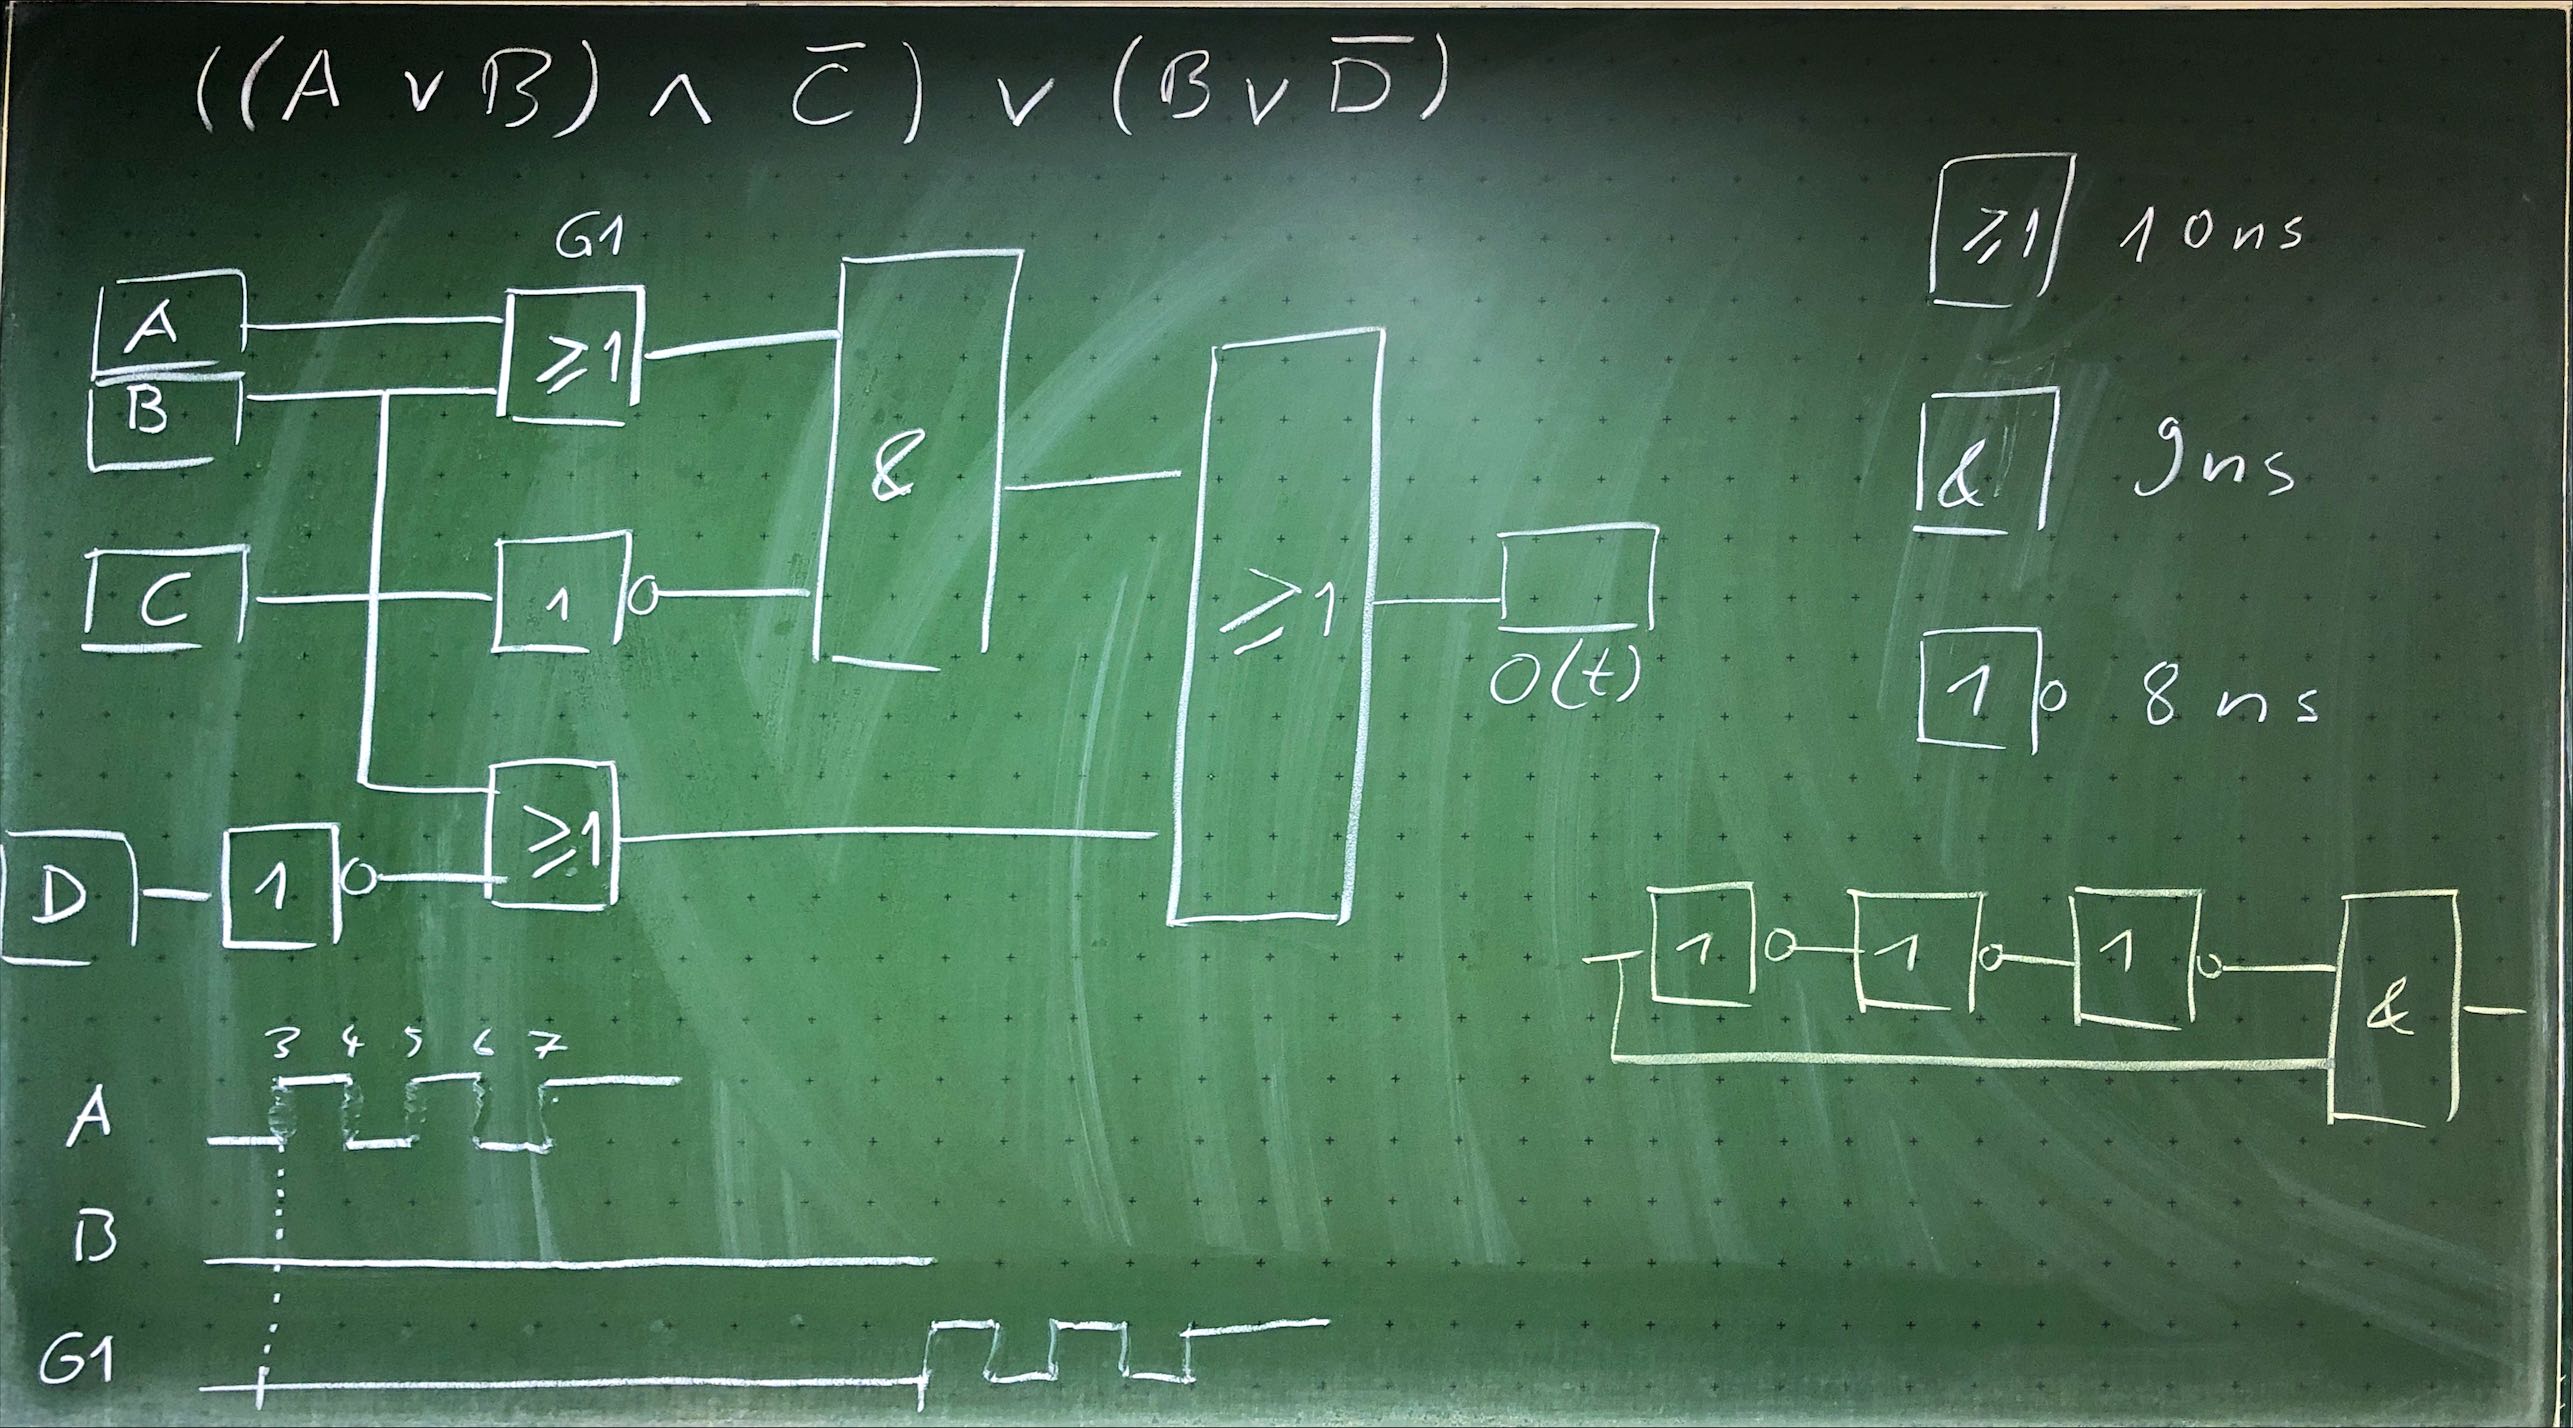 ((A ∨ B) ∧ C̅) ∨ (B ∨ D̅)
G1
A
≥1
B
&
C
1
≥1
O(t)
D
1
≥1
≥1 10ns
& 9ns
1 8ns
1 1 1 &
3 4 5 6 7
A
B
G1